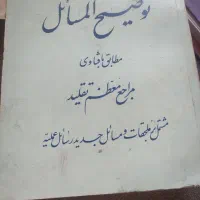 توضیح المسائل
مطابق با فتاوی
مراجع معظم تقلید
مشتمل بر ملحقات و مسائل جدیده رسائل عملیه